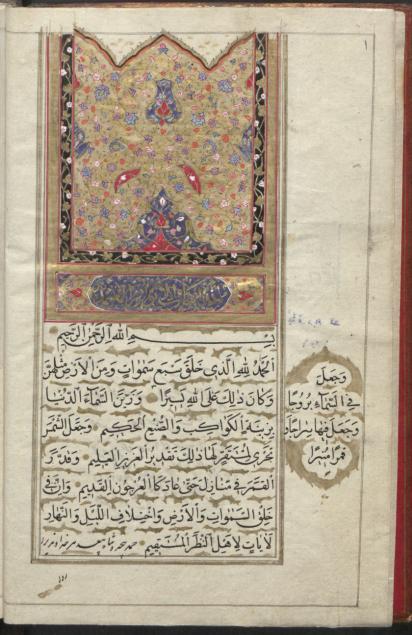 ١
بسم الله الرحمن الرحيم
الحمد لله الذي خلق سبع سموات ومن الأرض مثلهن
وكان ذلك على الله يسيرا وزين السماء الدنيا
بزينة الكواكب والصنع الحكيم وجعل الشمس
تجري لمستقر لها ذلك تقدير العزيز العليم وقدر
القمر في منازل حتى عاد كالعرجون القديم وان في
خلق السموات والأرض واختلاف الليل والنهار
لآيات لاهل النظر المستقيم
وجعل
في السماء بروجا
وجعل فيها سراجا و
قمرا منيرا